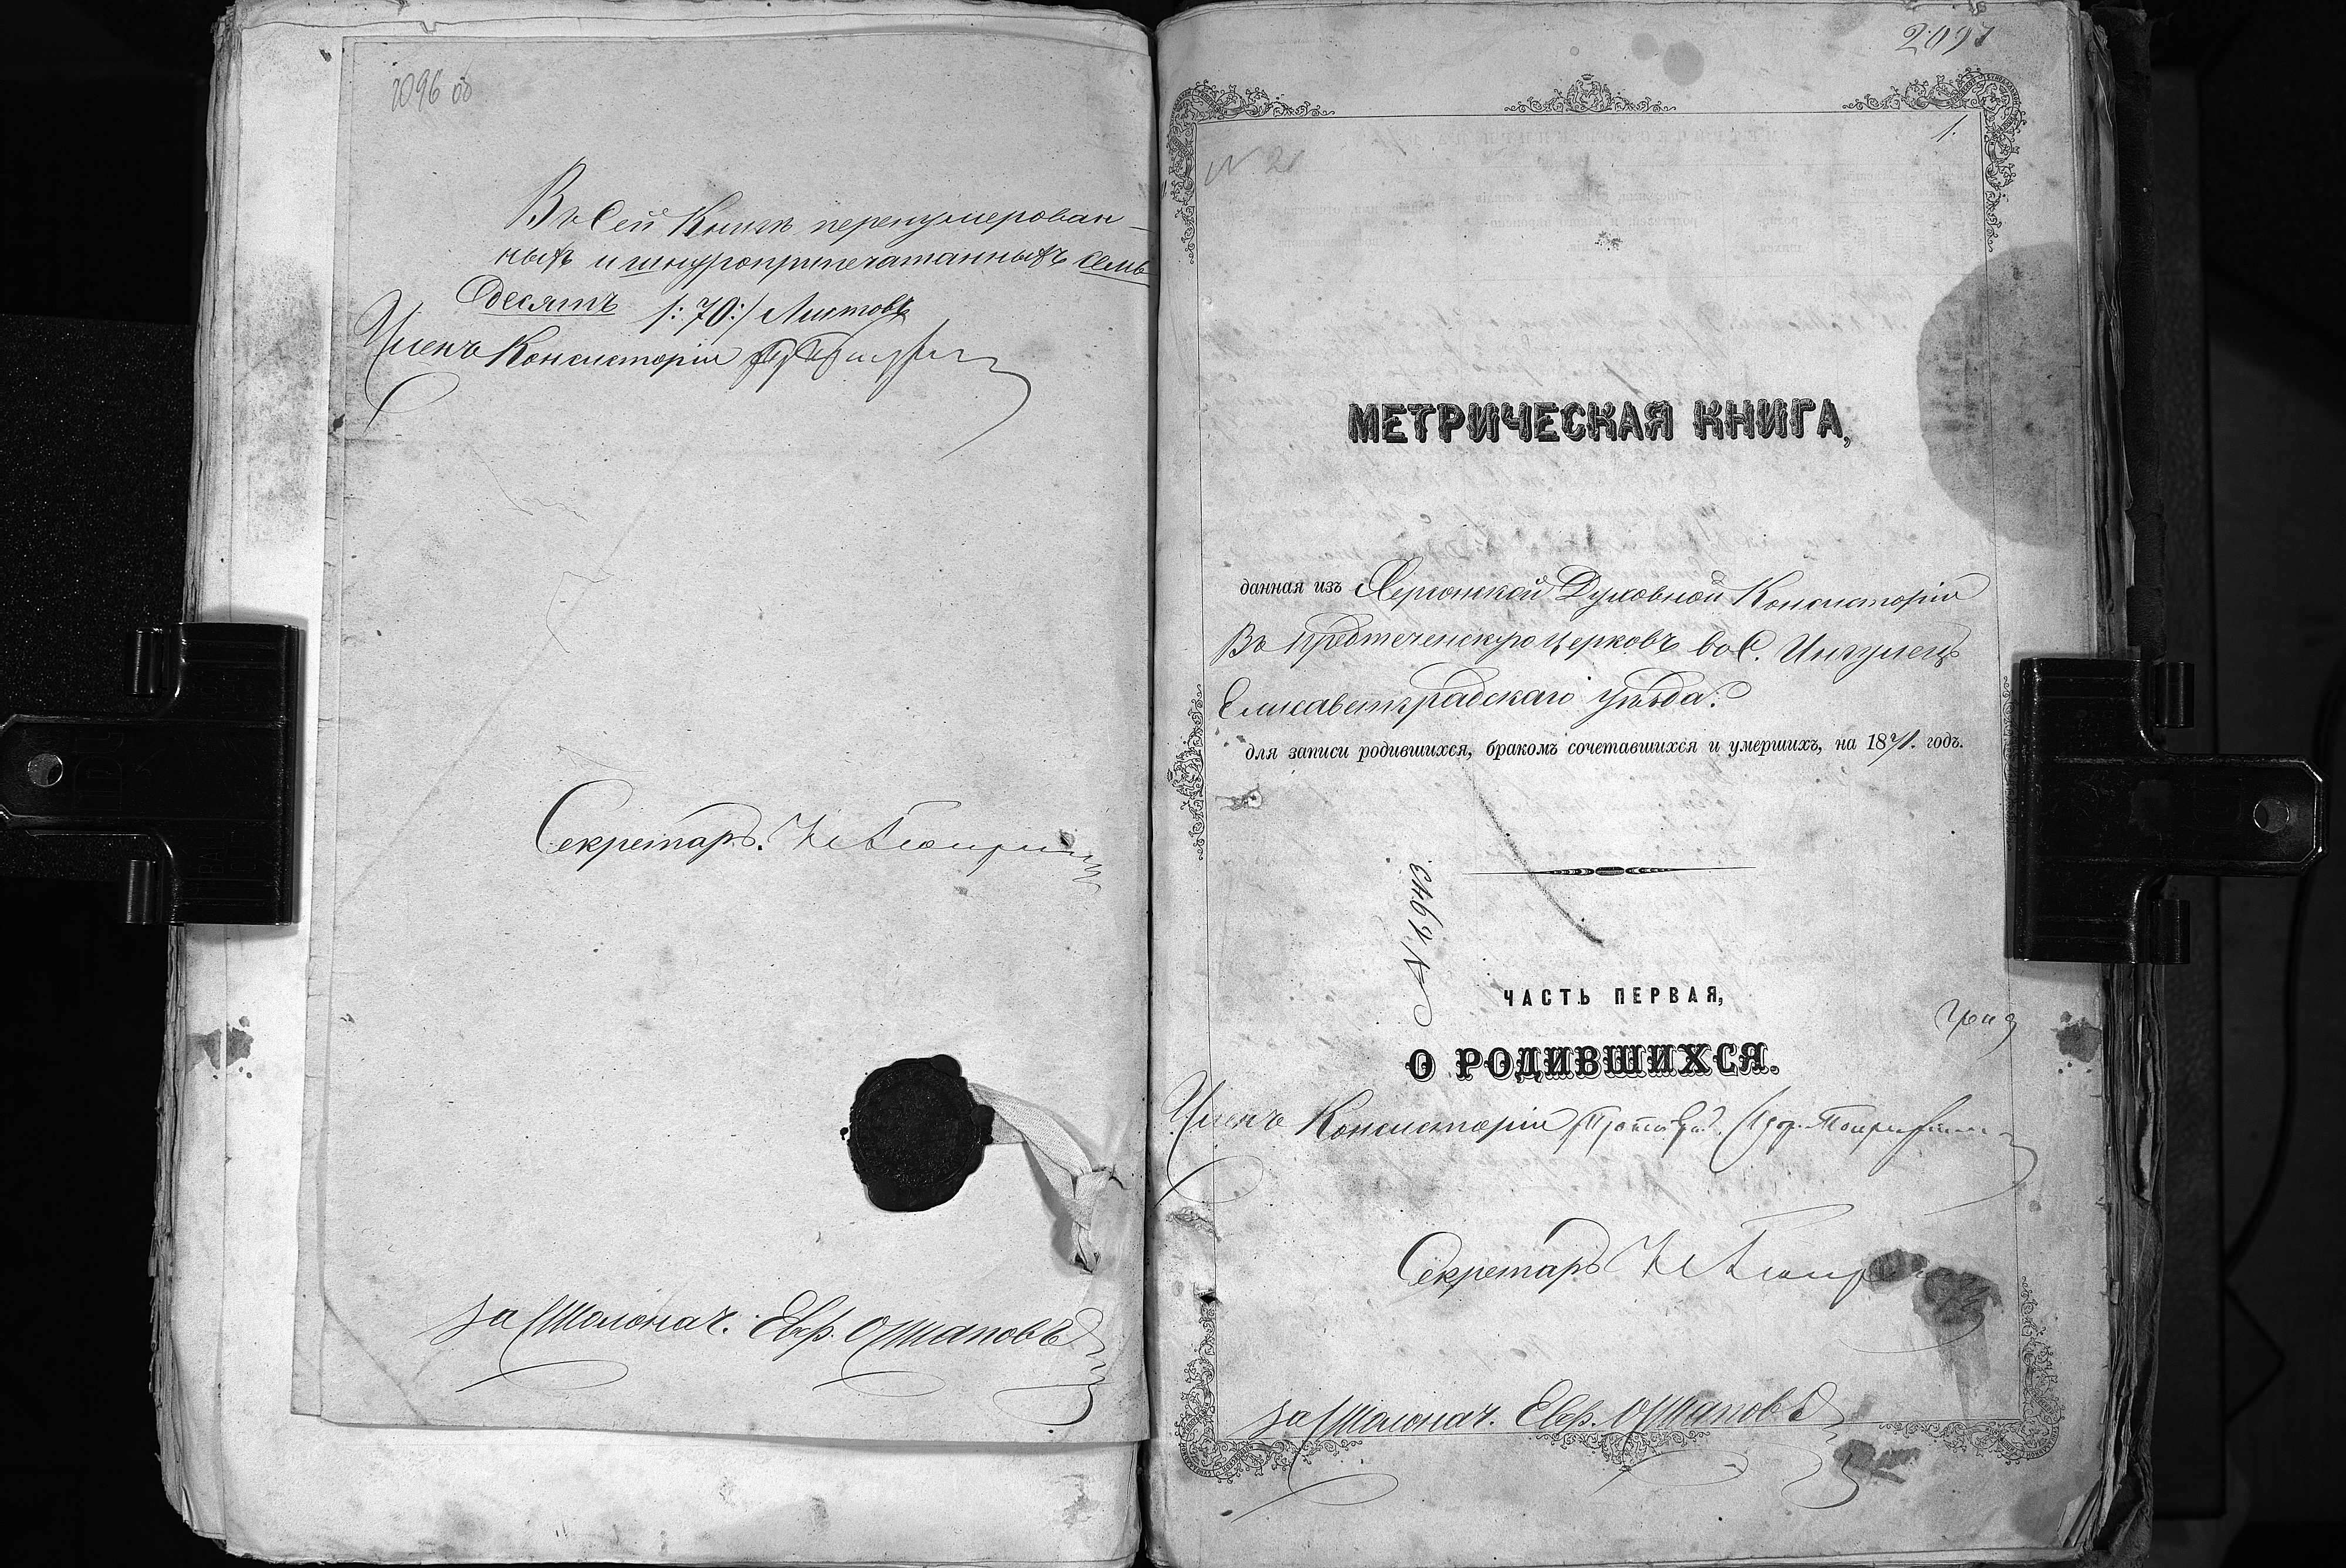 2096 об
Въ Сей Книгѣ перенумерован-
ныхъ и шнуроприпечатанныхъ семь
десятъ /: 70 :/ Листовъ
Членъ Консисторіи
Секретарь
За Столонач. Евф. Остаповъ
2097
1.
N 21
МЕТРИЧЕСКАЯ КНИГА,
данная изъ Херсонской Духовной Консисторіи
Въ предтеченскую церковь во С. Ингулецъ
Елисаветградскаго уѣзда.
для записи родившихся, бракомъ сочетавшихся и умершихъ, на 1871. годъ.
№ 7943
ЧАСТЬ ПЕРВАЯ,
О РОДИВШИХСЯ.
Членъ Консисторіи
Секретарь
За Столонач. Евф. Остаповъ